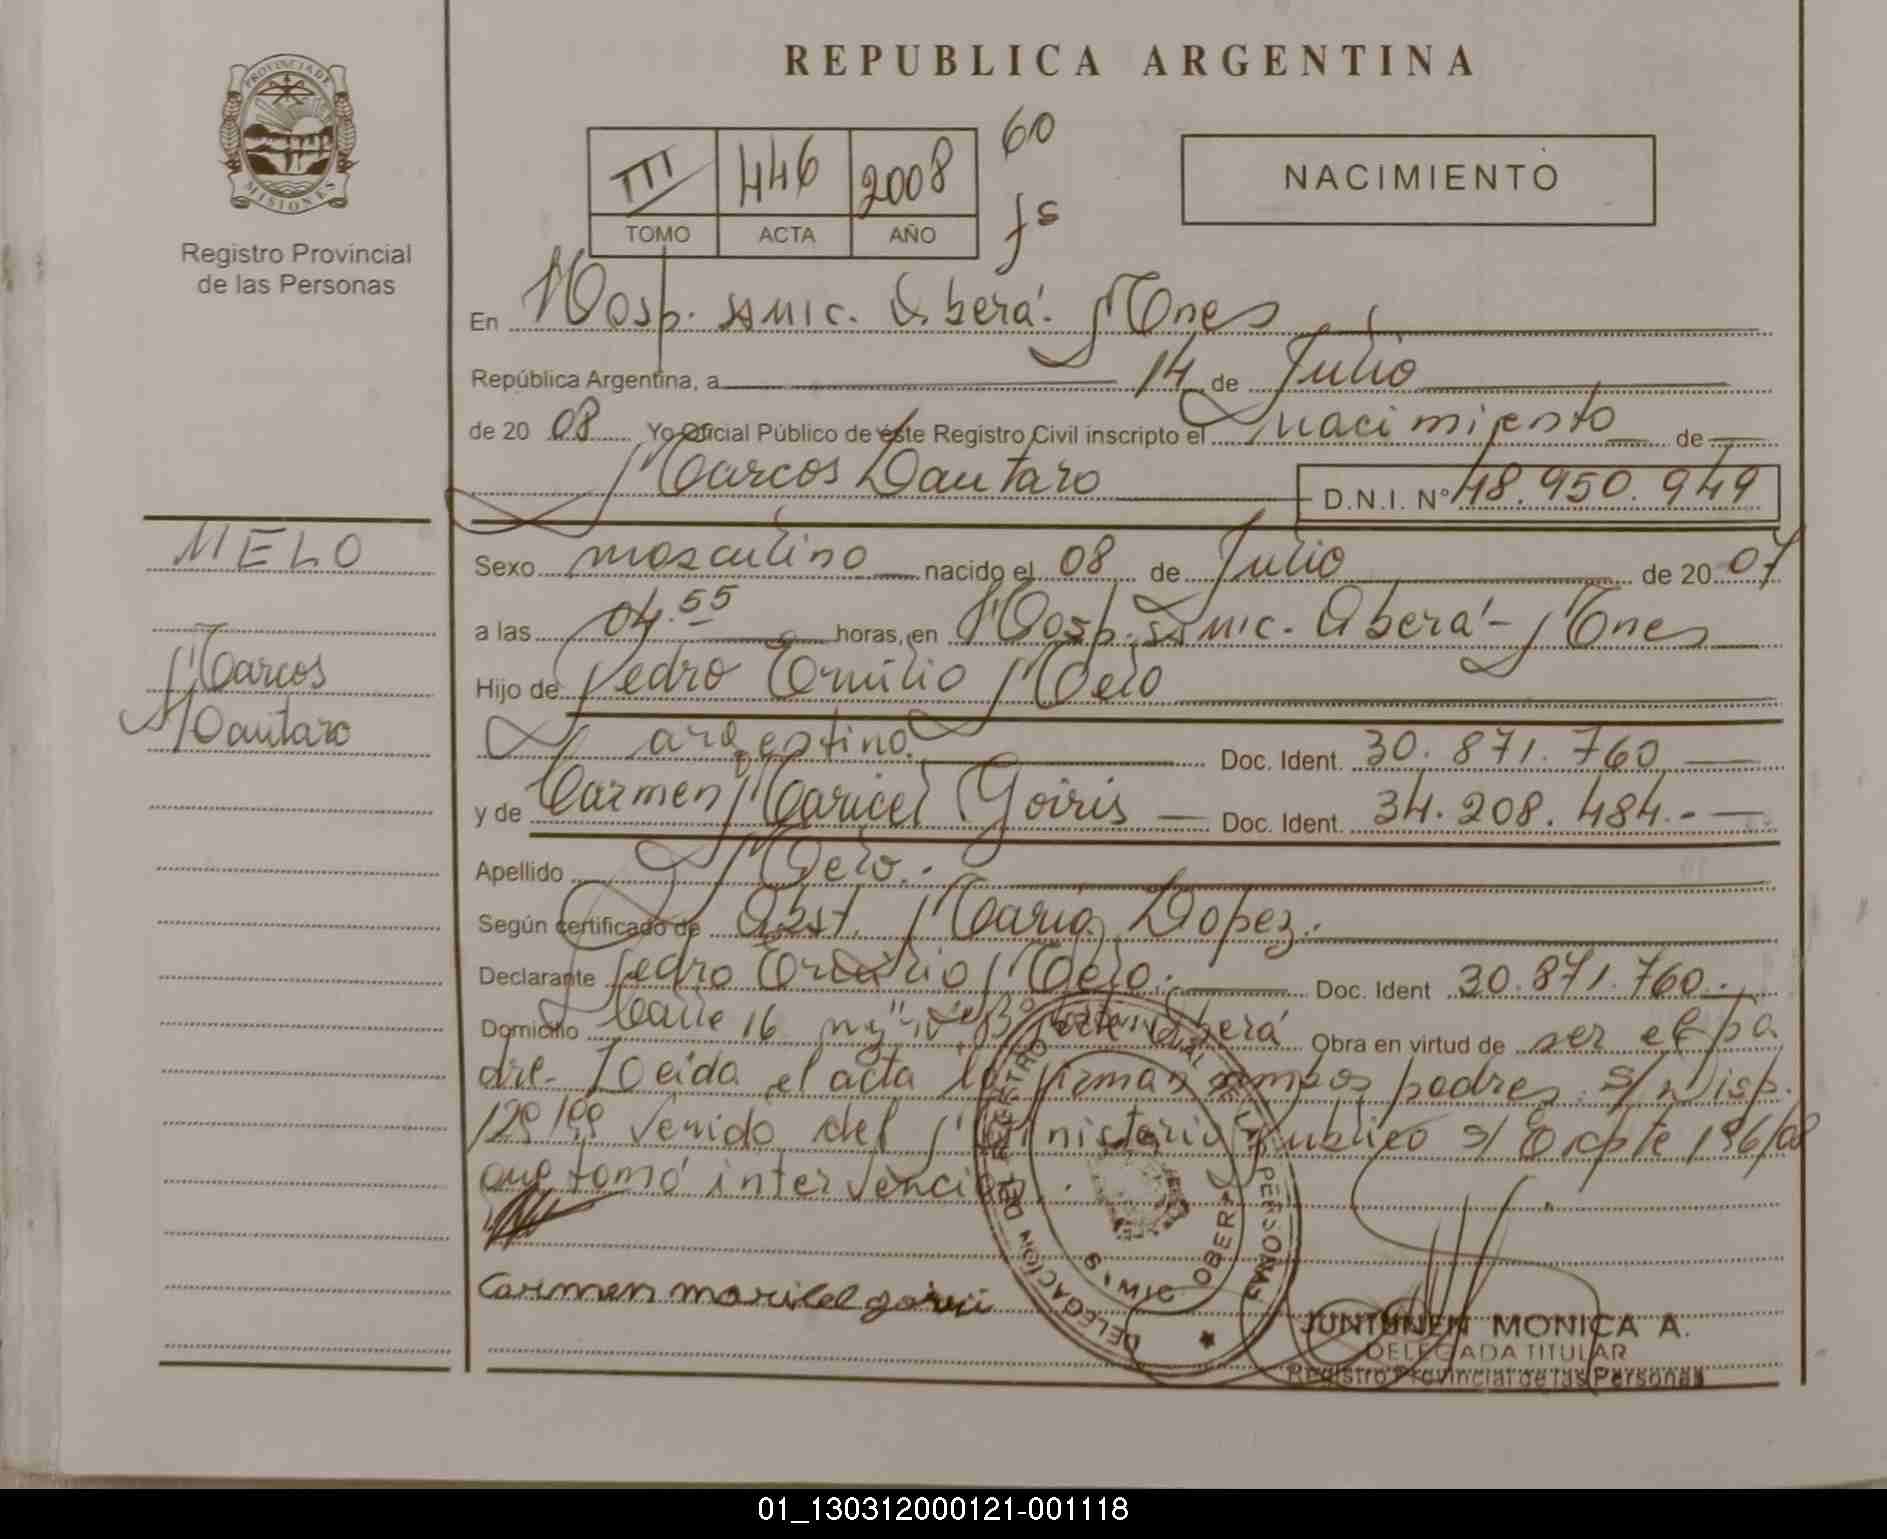 REPUBLICA ARGENTINA
PROVINCIA DE
MISIONES
Registro Provincial
de las Personas
III 446 2008
TOMO ACTA AÑO
60
fs
NACIMIENTO
En Hosp. SAMIC. Oberá. Mnes
República Argentina, a 14 de Julio
de 20 08 Yo Oficial Público de éste Registro Civil inscripto el nacimiento de
Marcos Lautaro D.N.I. Nº 48.950.949
MELO
Marcos
Lautaro
Sexo masculino nacido el 08 de Julio de 20 07
a las 04.55 horas, en Hosp. SAMIC. Oberá - Mnes
Hijo de Pedro Emilio Melo
argentino. Doc. Ident. 30.871.760
y de Carmen Maricel Goiris Doc. Ident. 34.208.484.-
Apellido Melo.-
Según certificado de Obst. María Lopez.
Declarante Pedro Emilio Melo. Doc. Ident 30.871.760.
Domicilio Calle 16 Oberá Obra en virtud de ser el pa
dre. Leída el acta la firman ambos padres. S/ Disp.
129/99 venido del Ministerio Publico S/ Expte 196/08
que tomó intervención.
Carmen maricel goiris
DELEGACION DEL REGISTRO PERSONAS
OBERA
JUNTUNEN MONICA A.
DELEGADA TITULAR
Registro Provincial de las Personas
01_130312000121-001118